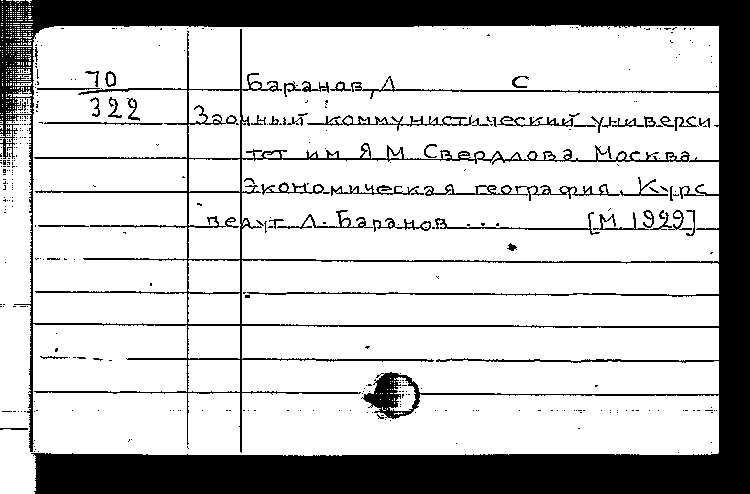 70
322
Баранов, Л С
Заочный коммунистический универси
тет им Я М Свердлова. Москва.
Экономическая география. Курс
ведут Л. Баранов ... [М. 1929]